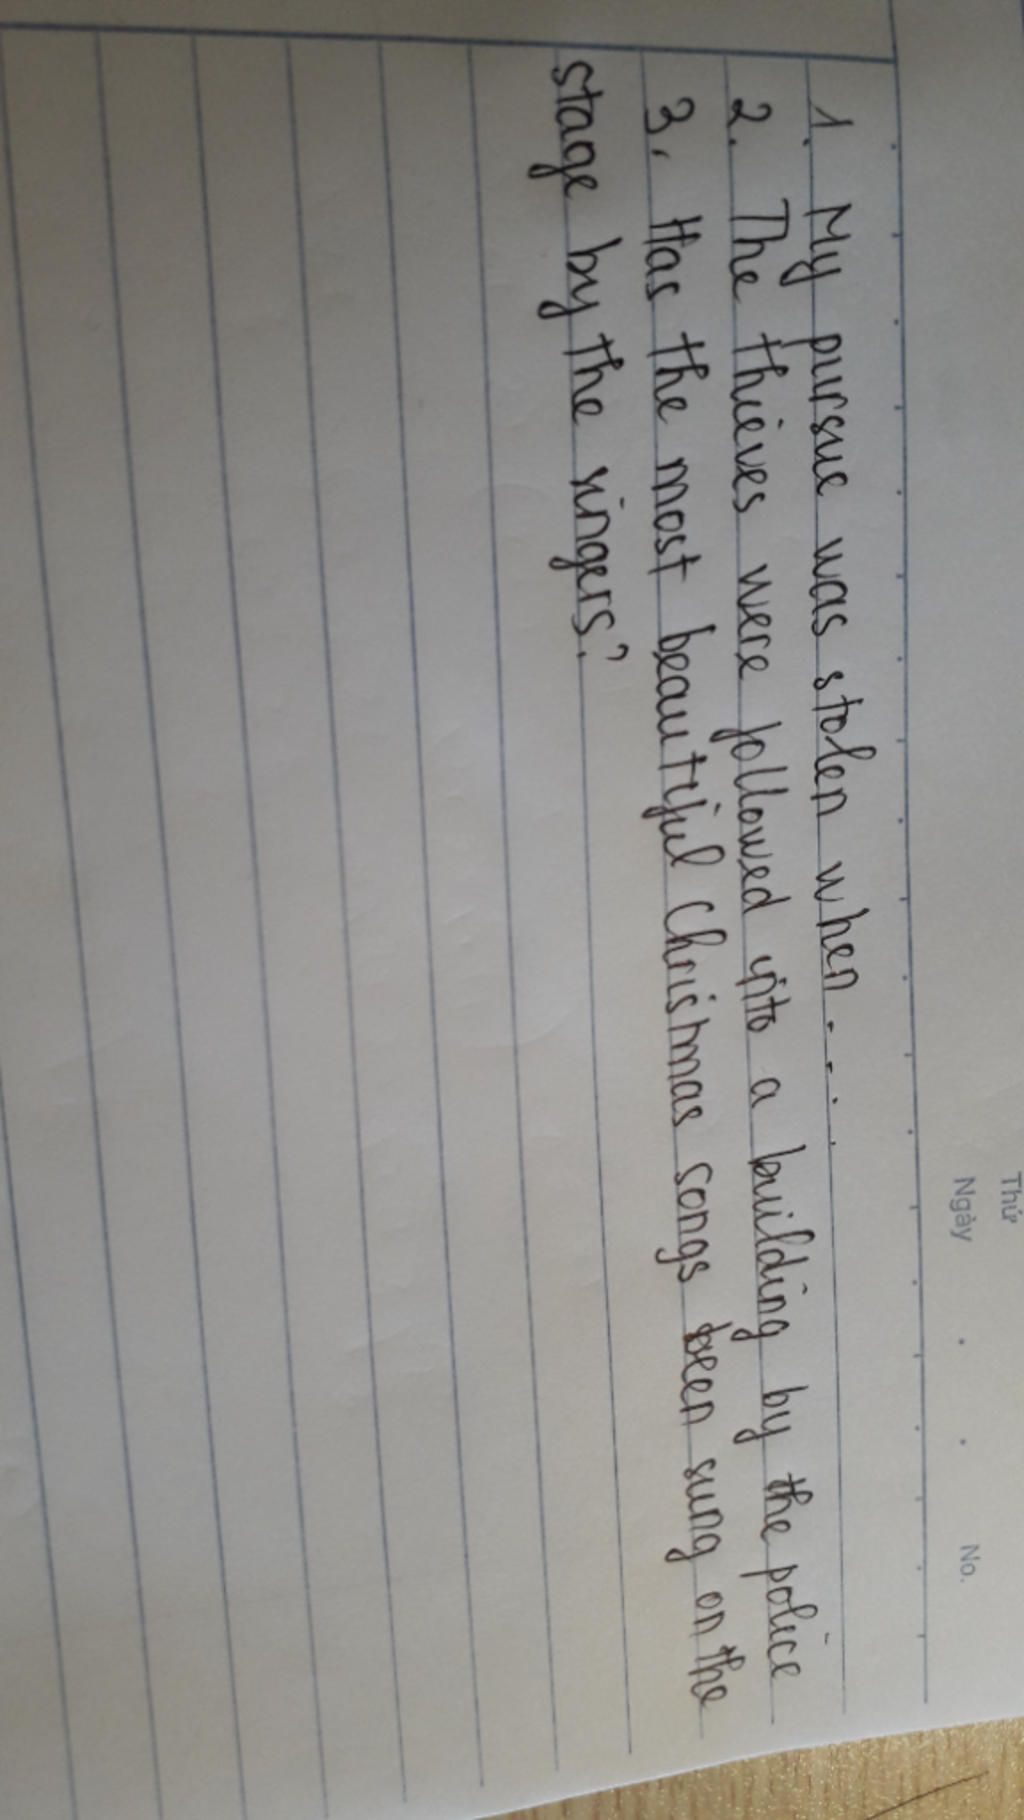 Thứ
Ngày No.
1. My pursue was stolen when.....
2. The thieves were followed into a building by the police
3. Has the most beautiful Chrismas songs been sung on the
stage by the singers?